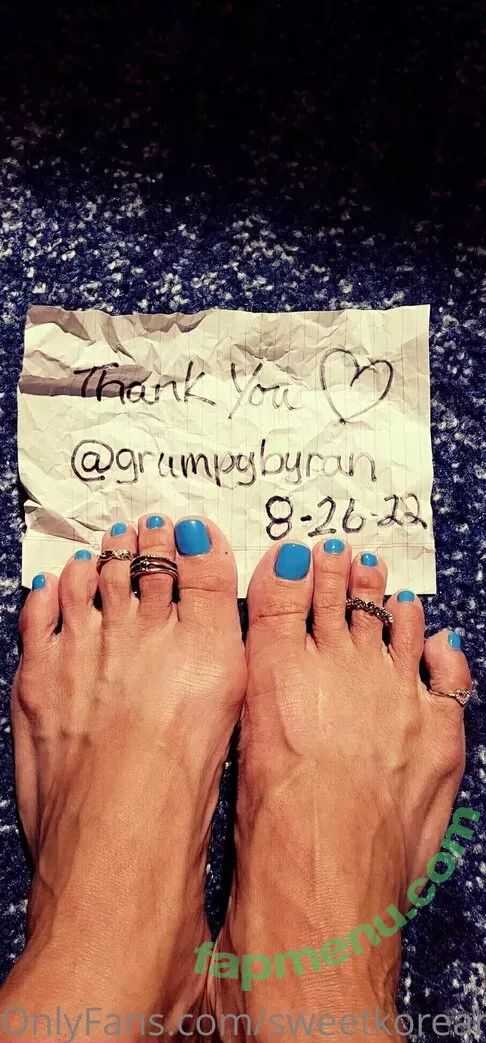 Thank You ♡
@grumpybyran
8-26-22
fapmenu.com
OnlyFans.com/sweetkorean